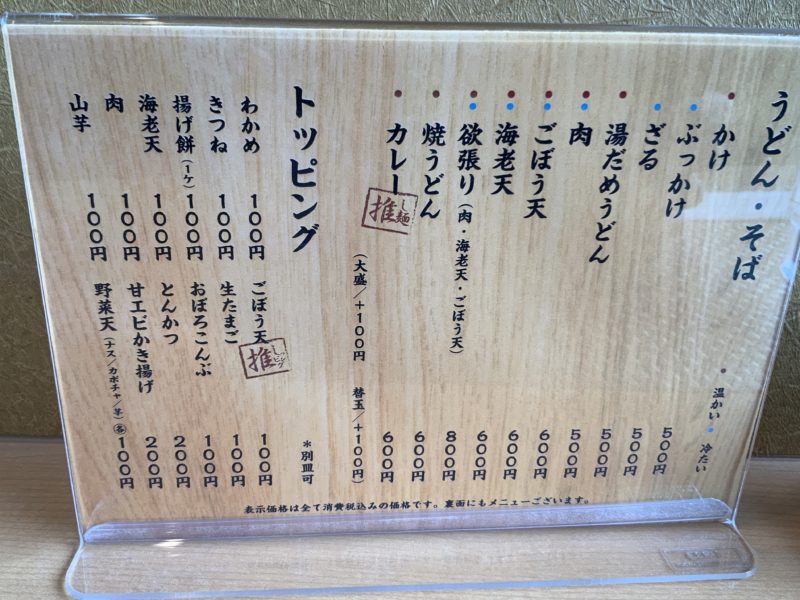 うどん・そば
温かい 冷たい
かけ 500円
ぶっかけ 500円
ざる 500円
湯だめうどん 500円
肉 600円
ごぼう天 600円
海老天 600円
欲張り(肉・海老天・ごぼう天) 800円
焼うどん 600円
カレー 推し麺 600円
(大盛/+100円 替玉/+100円)
トッピング *別皿可
わかめ 100円
きつね 100円
揚げ餅(1ケ) 100円
海老天 100円
肉 100円
山芋 100円
ごぼう天 推し 100円
生たまご 100円
おぼろこんぶ 100円
とんかつ 200円
甘エビかき揚げ 200円
野菜天(ナス/カボチャ/芋) 各100円
表示価格は全て消費税込みの価格です。裏面にもメニューございます。